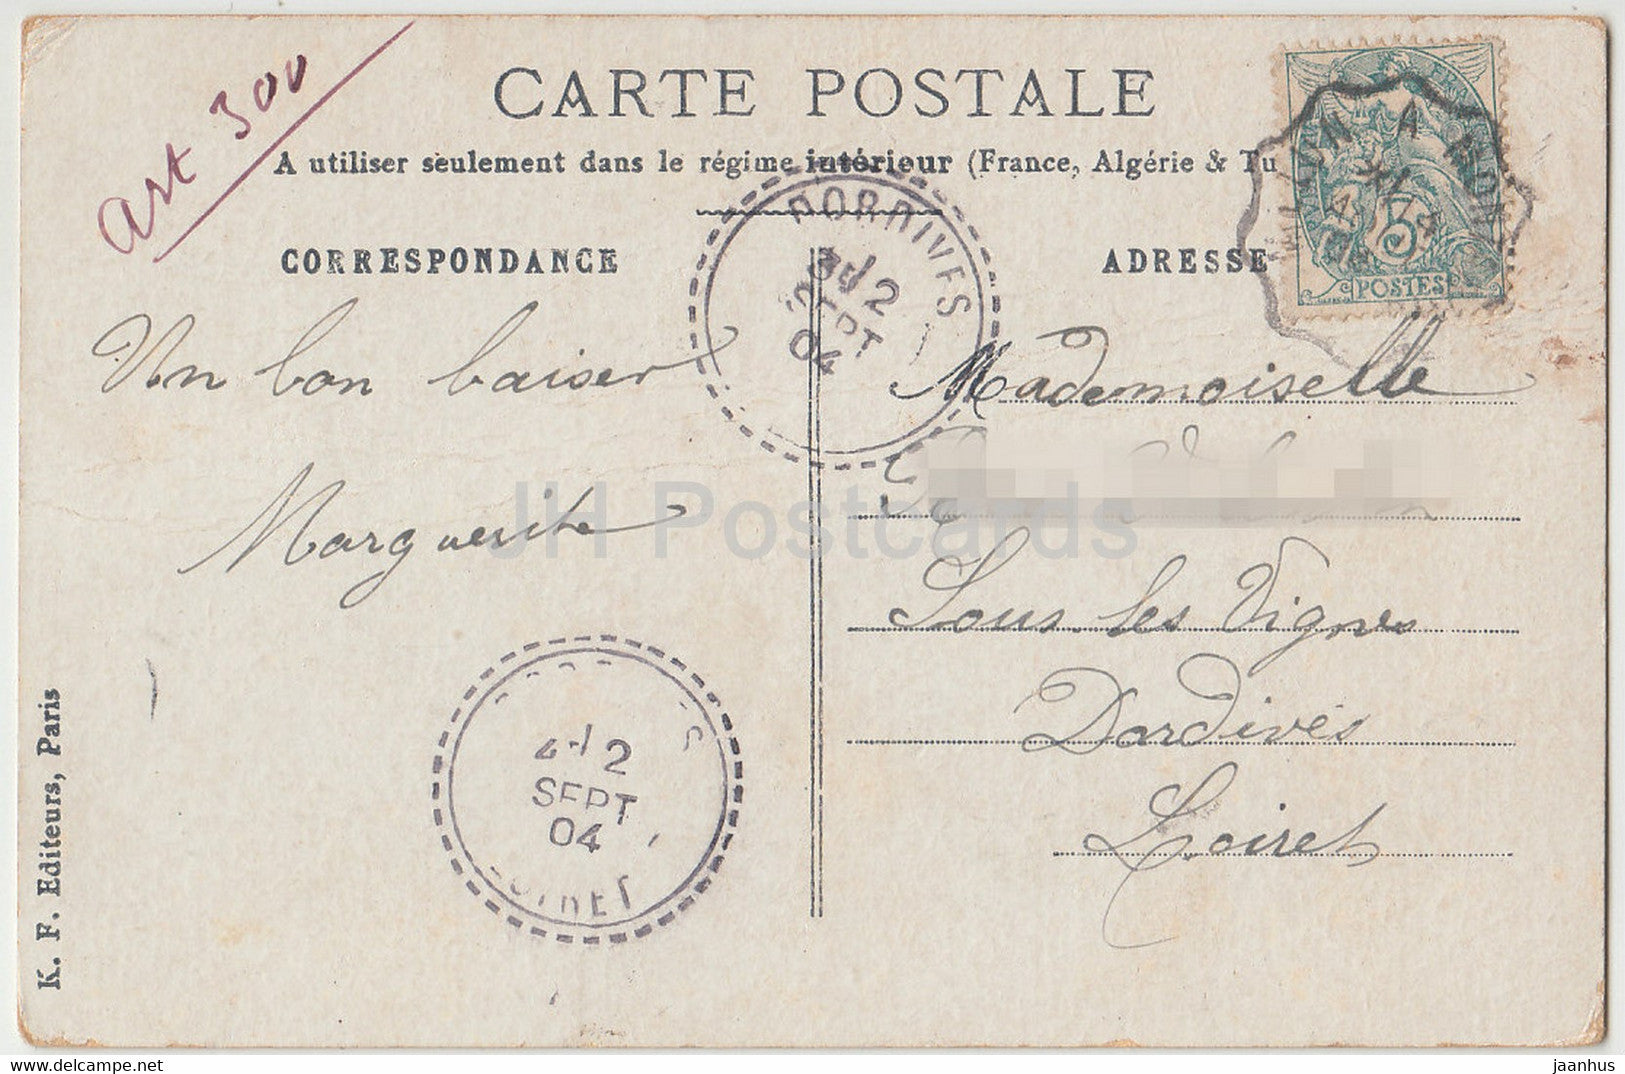 Art 300
CARTE POSTALE
A utiliser seulement dans le régime intérieur (France, Algérie & Tu
CORRESPONDANCE
ADRESSE
POSTES
5
DORDIVES
2
SEPT
04
Un bon baiser
Marguerite
Mademoiselle
Sous les Vignes
Dordives
Loiret
2
SEPT
04
LOIRET
K. F. Editeurs, Paris
JH Postcards
www.delcampe.net
jaanhus